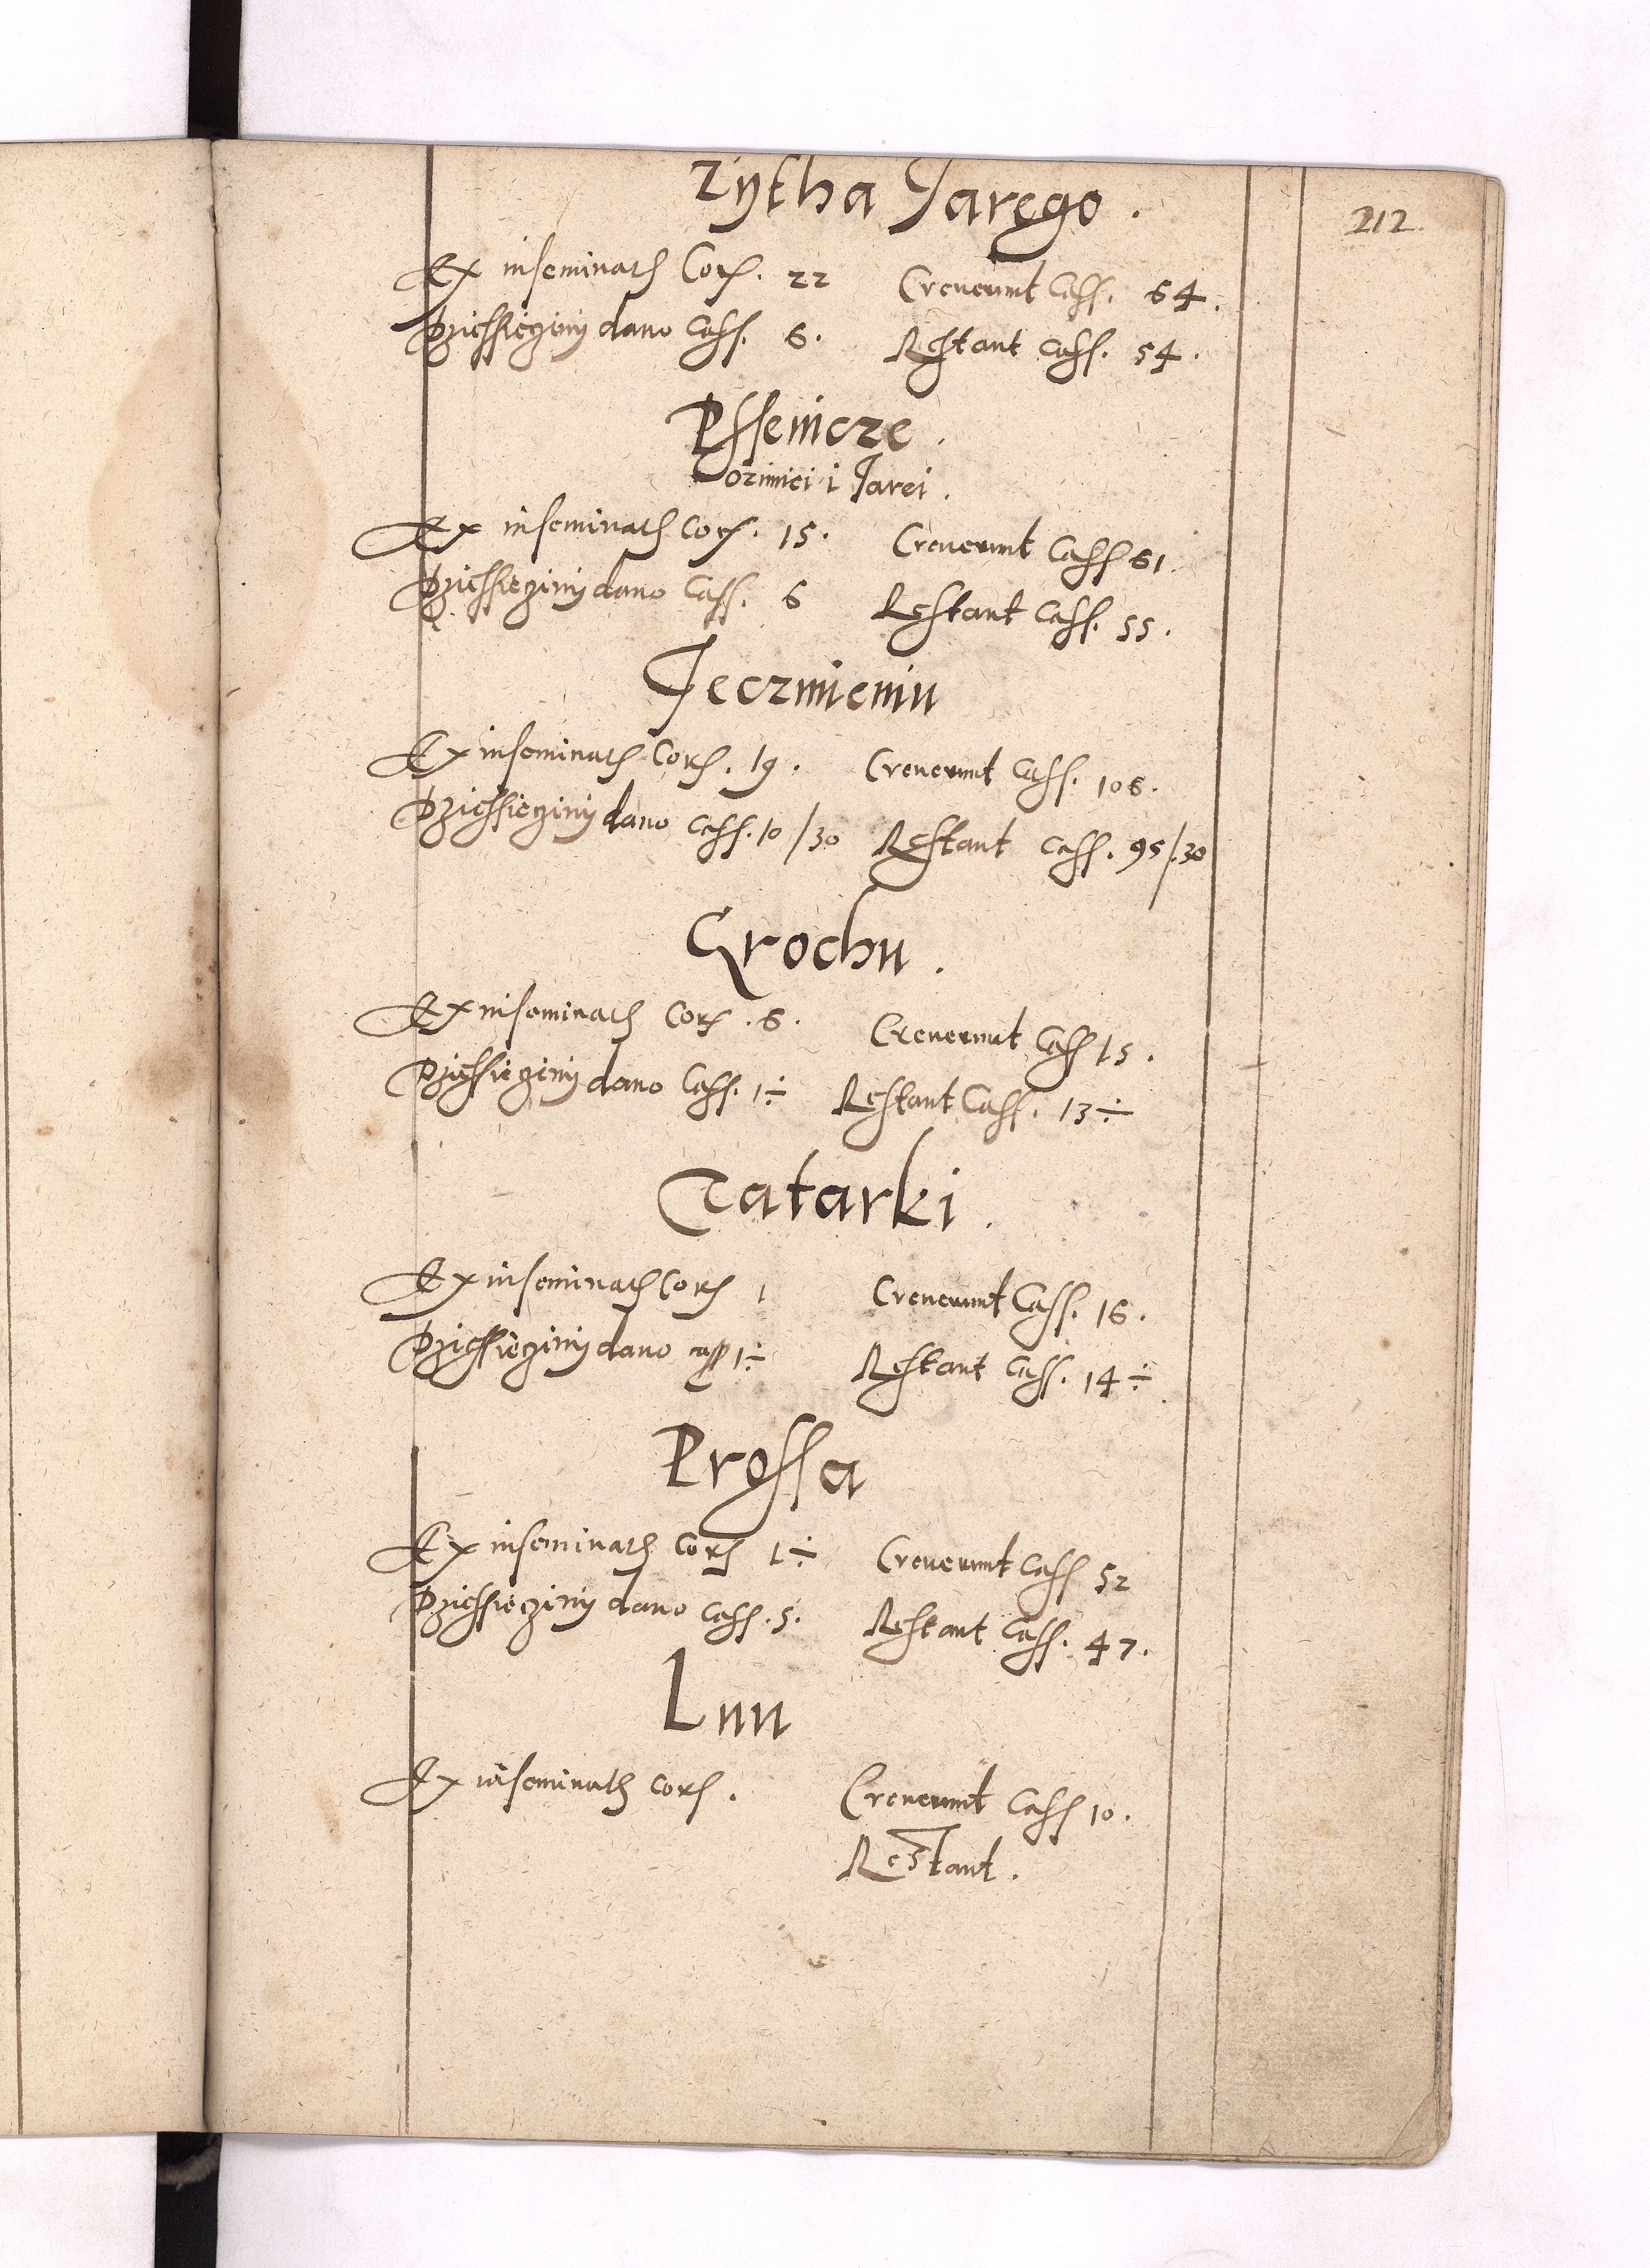 212.
Zÿtha Jarego.
Ex inseminath Cor. 22 Creuerunt Cass. 64.
Dziessięciny dano Cass. 6. Restant Cass. 54.
Pssenicze.
Ozimiei i Jarei.
Ex inseminath Cor. 15. Creuerunt Cass 61.
Dziessięciny dano Cass. 6 Restant Cass. 55.
Jeczmieniu
Ex inseminath Cor. 19. Creuerunt Cass. 106.
Dziessięciny dano Cass. 10/30 Restant Cass. 95/.30
Grochu.
Ex inseminath Cor. 6. Creuerunt Cass 15.
Dziessięciny dano Cass. 1÷ Restant Cass. 13÷
Tatarki.
Ex inseminath Cor 1 Creuerunt Cass. 16.
Dziessięciny dano cass 1÷ Restant Cass. 14÷
Prossa
Ex inseminath Cor 1÷ Creuerunt Cass 52
Dziessięciny dano Cass. 5. Restant Cass. 47.
Lnu
Ex inseminath Cor. Creuerunt Cass 10.
Restant.